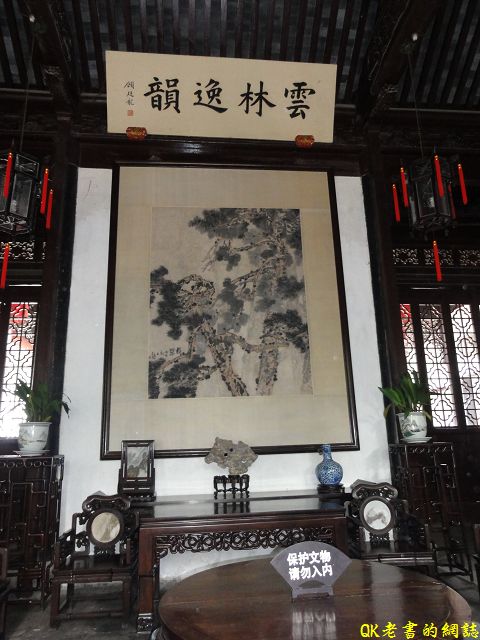 雲林逸韻
顧廷龍
保护文物
请勿入内
QK老書的網誌